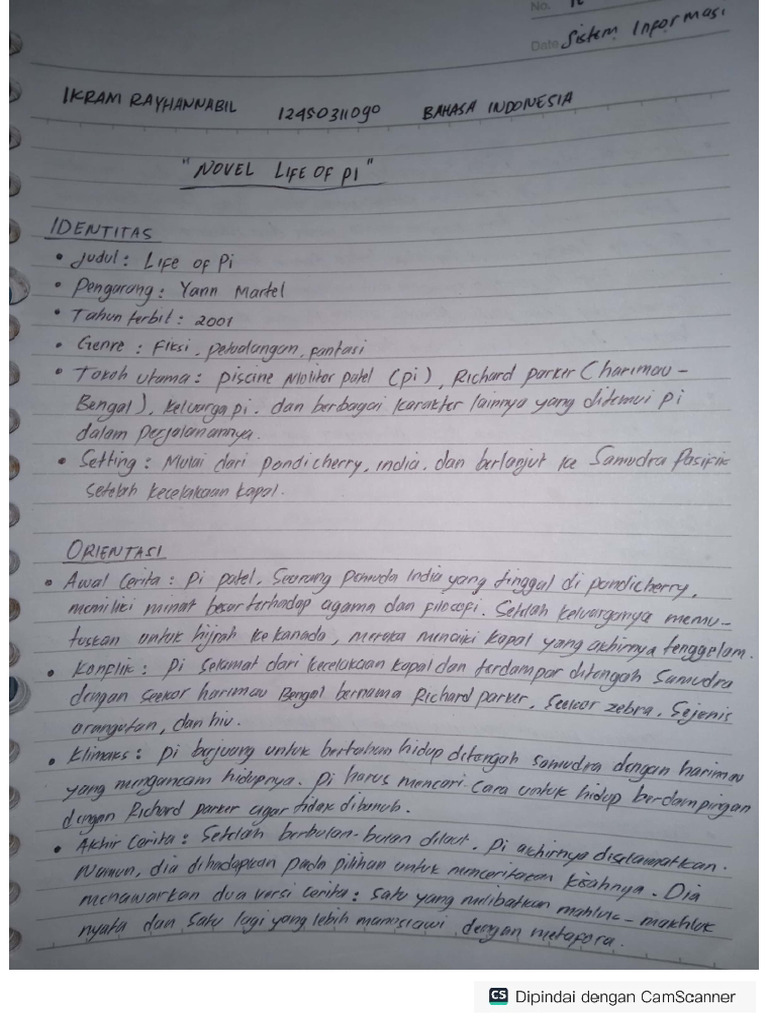 No.
Date Sistem Informasi
IKRAM RAYHANNABIL 12450311090 BAHASA INDONESIA
"NOVEL LIFE OF PI"
IDENTITAS
• Judul : Life of Pi
• Pengarang : Yann Martel
• Tahun terbit : 2001
• Genre : Fiksi, petualangan, fantasi
• Tokoh utama : Piscine Molitor patel (pi), Richard parker (harimau-
Bengal), keluarga pi, dan berbagai karakter lainnya yang ditemui pi
dalam perjalanannya.
• Setting : Mulai dari pondicherry, india, dan berlanjut ke Samudra Pasifik
setelah kecelakaan kapal.
ORIENTASI
• Awal Cerita : pi patel, Seorang pemuda India yang tinggal di pondicherry,
memiliki minat besar terhadap agama dan filosofi. Setelah keluarganya memu-
tuskan untuk hijrah ke kanada, mereka menaiki kapal yang akhirnya tenggelam.
• Konflik : Pi selamat dari kecelakaan kapal dan terdampar ditengah Samudra
dengan seekor harimau Bengal bernama Richard parker, seekor zebra, Sejenis
orangutan, dan hiu.
• Klimaks : pi berjuang untuk bertahan hidup ditengah samudra dengan harimau
yang mengancam hidupnya. pi harus mencari cara untuk hidup berdampingan
dengan Richard parker agar tidak dibunuh.
• Akhir Cerita : Setelah berbulan-bulan dilaut, pi akhirnya diselamatkan.
Namun, dia dihadapkan pada pilihan untuk menceritakan kisahnya. Dia
menawarkan dua versi cerita : satu yang melibatkan mahluk-makhluk
nyata dan satu lagi yang lebih manusiawi dengan metafora.
CS Dipindai dengan CamScanner